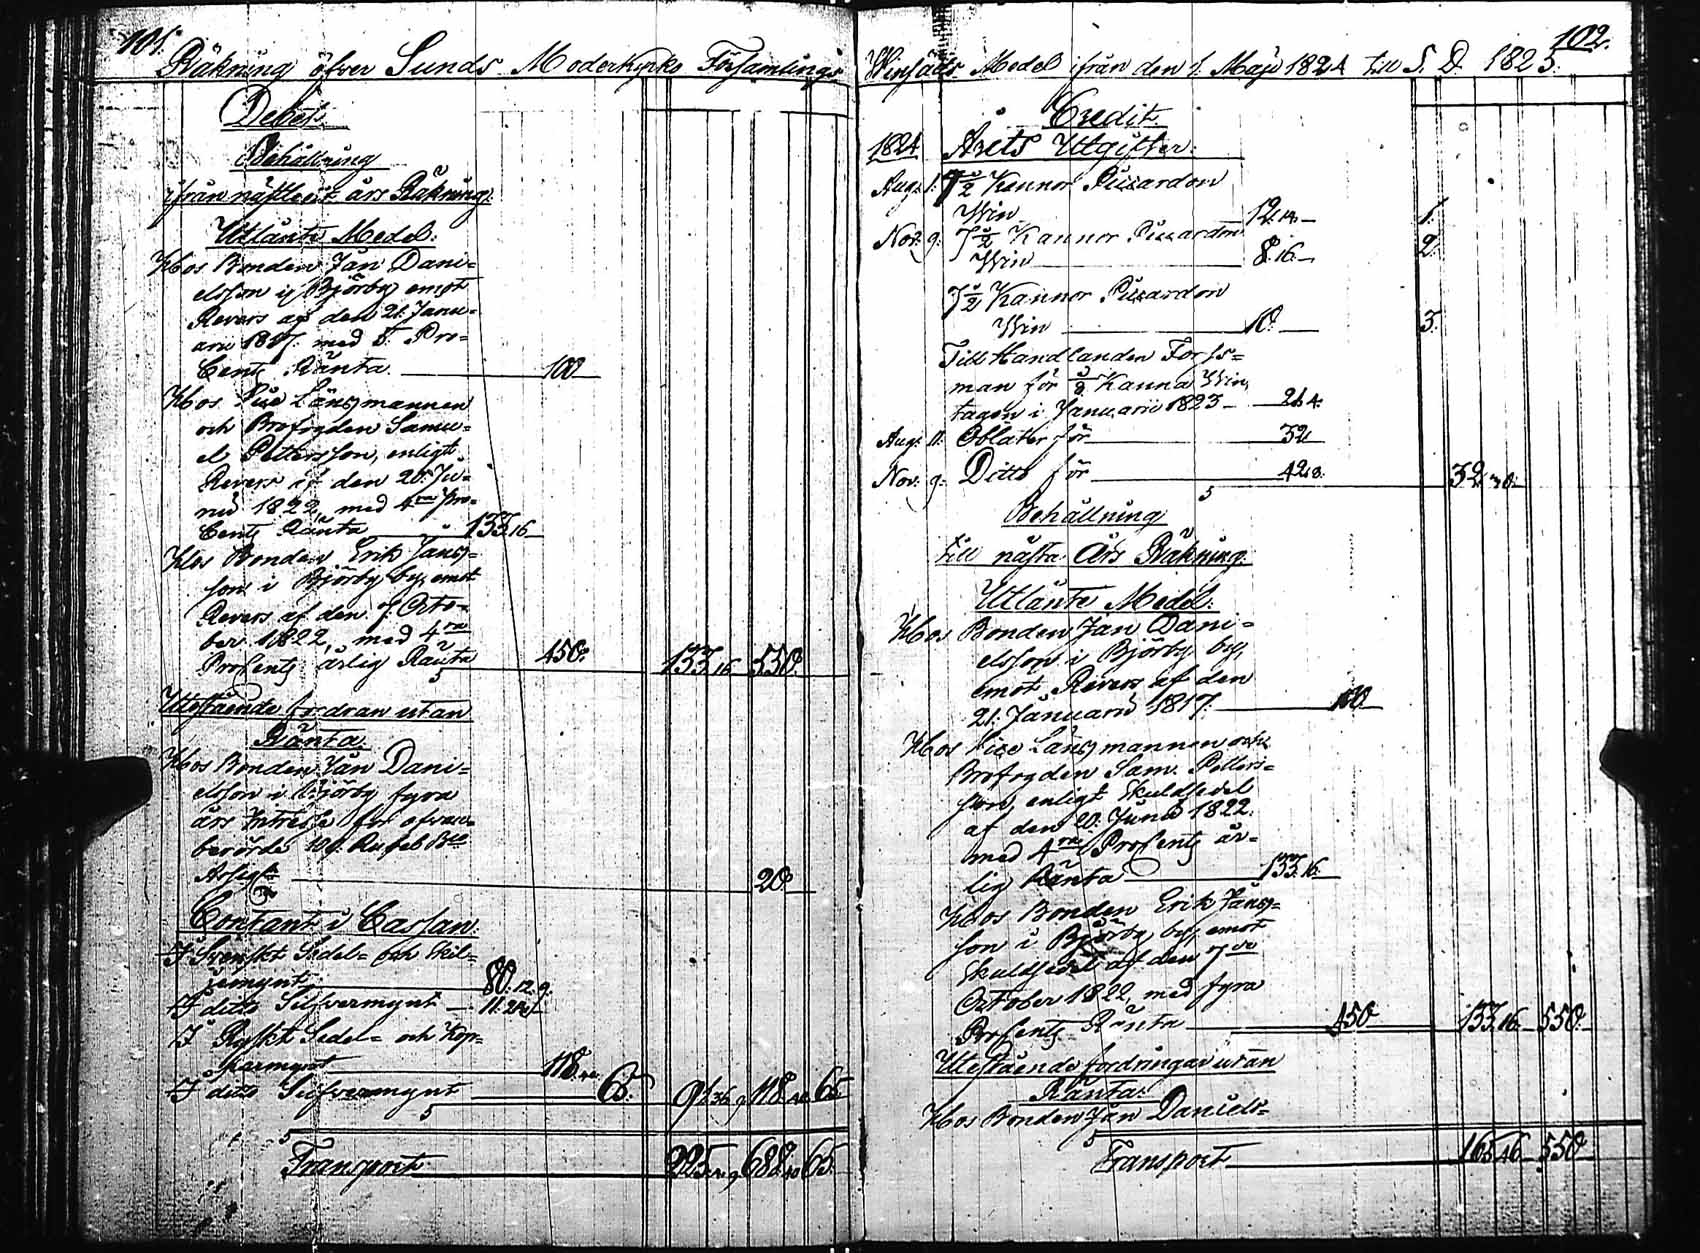 101.
Räkning öfver Sunds Moderkyrko Församlings
Debet.
Behållning
ifrån nästledit års Räkning.
Utlånte Medel:
Hos Bonden Jan Dani=
elsson i Björby emot
Revers af den 21. Janu=
arii 1817. med 5. Pro=
Cents Ränta. 100
Hos Vice Länsmannen
och Brofogden Samu=
el Pettersson, enligt
Revers af den 20. Ju=
nii 1822, med 4ra Pro=
Cents Ränta 133.16
Hos Bonden Erik Jans=
son i Björby by, emot
Revers af den 9. Octo=
ber 1822, med 4ra
ProCents årlig Ränta 450. 133.16 550.
Utestående fordran utan
Ränta.
Hos Bonden Jan Dani=
elsson i Björby fyra
års Intresse för ofvan=
berörde 100. Rubel Bco
Assigt: 20.
Contant i Cassan.
I Svenskt Sedel= och Skil=
jemynt 80.12.9.
I ditto Silfvermynt 11.24
I Ryskt Sedel= och Kop=
parmynt 118.40.
I ditto Silfvermynt 65. 91.36.9 118.40 65.
Transport 225.4.9 688.40 65.
102.
Winsäds Medel ifrån den 1. Maji 1824 till S. D. 1825.
Credit.
1824 Årets Utgifter:
Aug. 1. 7½ Kannor Piccardon
Win 12.14. 1.
Nov. 9. 7½ Kannor Piccardon
Win 8.16. 2.
7½ Kannor Piccardon
Win 10. 3.
Till Handlanden Forss=
man för Kanna Win,
tagen i Januarii 1823 21.4.
Aug. 11. Oblater för 32
Nov. 9. Ditto för 42.8. 32.30.
Behållning
till nästa Års Räkning.
Utlånte Medel:
Hos Bonden Jan Dani=
elsson i Björby by,
emot Revers af den
21. Januarii 1817. 100
Hos Vice Länsmannen och
Brofogden Sam. Petters=
son, enligt Skuldsedel
af den 20. Junii 1822.
med 4ra ProCents år=
lig Ränta 133.16.
Hos Bonden Erik Jans=
son i Björby by, emot
Skuldsedel af den 9de
October 1822, med fyra
ProCents Ränta 450 133.16 550.
Utestående fordringar utan
Ränta:
Hos Bonden Jan Daniels=
Transport 165.46 550.